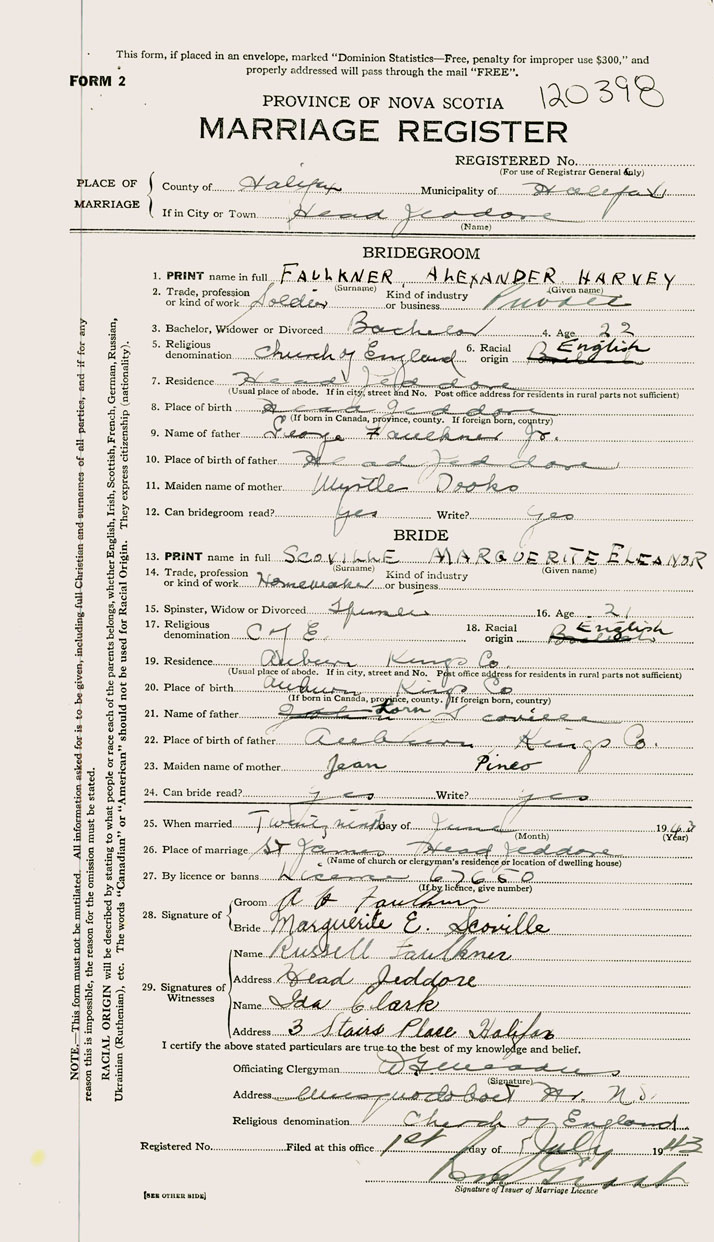 This form, if placed in an envelope, marked "Dominion Statistics—Free, penalty for improper use $300," and
properly addressed will pass through the mail "FREE".
FORM 2
PROVINCE OF NOVA SCOTIA 120398
MARRIAGE REGISTER
REGISTERED No.
(For use of Registrar General Only)
PLACE OF MARRIAGE
County of Halifax Municipality of Halifax
If in City or Town Head Jeddore
(Name)
BRIDEGROOM
1. PRINT name in full FAULKNER, ALEXANDER HARVEY
(Surname) (Given name)
2. Trade, profession or kind of work Soldier Kind of industry or business Private
3. Bachelor, Widower or Divorced Bachelor 4. Age 22
5. Religious denomination Church of England 6. Racial origin English
7. Residence Head Jeddore
(Usual place of abode. If in city, street and No. Post office address for residents in rural parts not sufficient)
8. Place of birth Head Jeddore
(If born in Canada, province, county. If foreign born, country)
9. Name of father George Faulkner Jr.
10. Place of birth of father Head Jeddore
11. Maiden name of mother Myrtle Dooks
12. Can bridegroom read? yes Write? yes
BRIDE
13. PRINT name in full SCOVILLE MARGUERITE ELEANOR
(Surname) (Given name)
14. Trade, profession or kind of work Homemaker Kind of industry or business
15. Spinster, Widow or Divorced Spinster 16. Age 21
17. Religious denomination C of E. 18. Racial origin English
19. Residence Auburn Kings Co.
(Usual place of abode. If in city, street and No. Post office address for residents in rural parts not sufficient)
20. Place of birth Auburn Kings Co
(If born in Canada, province, county. If foreign born, country)
21. Name of father Scoville
22. Place of birth of father Auburn Kings Co.
23. Maiden name of mother Jean Pineo
24. Can bride read? yes Write? yes
25. When married Twenty ninth day of June 1943
(Month) (Year)
26. Place of marriage St James Head Jeddore
(Name of church or clergyman's residence or location of dwelling house)
27. By licence or banns License 67650
(If by licence, give number)
28. Signature of
Groom A H Faulkner
Bride Marguerite E. Scoville
29. Signatures of Witnesses
Name Russell Faulkner
Address Head Jeddore
Name Ida Clark
Address 3 Stairs Place Halifax
I certify the above stated particulars are true to the best of my knowledge and belief.
Officiating Clergyman
(Signature)
Address Musquodoboit Hr. N.S.
Religious denomination Church of England
Registered No. Filed at this office 1st day of July 1943
Signature of Issuer of Marriage Licence
[SEE OTHER SIDE]
NOTE.—This form must not be mutilated. All information asked for is to be given, including full Christian and surnames of all parties, and if for any
reason this is impossible, the reason for the omission must be stated.
RACIAL ORIGIN will be described by stating to what people or race each of the parents belongs, whether English, Irish, Scottish, French, German, Russian,
Ukrainian (Ruthenian), etc. The words "Canadian" or "American" should not be used for Racial Origin. They express citizenship (nationality).